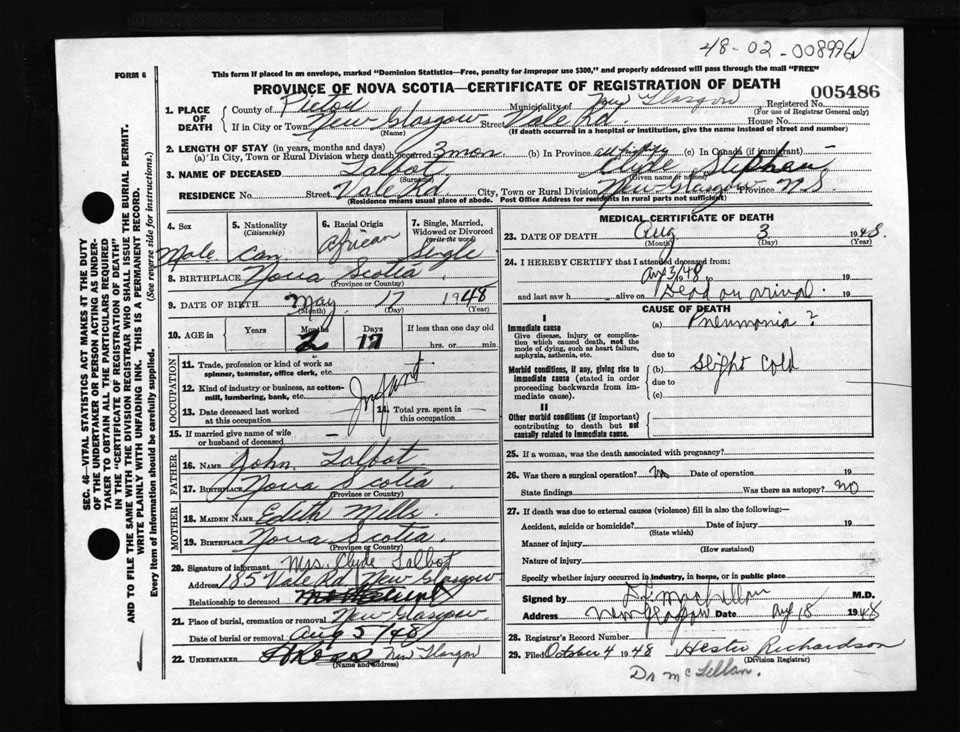 48-02-008996
FORM 6
This form if placed in an envelope, marked "Dominion Statistics—Free, penalty for improper use $300," and properly addressed will pass through the mail "FREE"
PROVINCE OF NOVA SCOTIA—CERTIFICATE OF REGISTRATION OF DEATH
005486
1. PLACE OF DEATH
County of Pictou Municipality of New Glasgow Registered No.
(For use of Registrar General only)
If in City or Town New Glasgow Street Vale Rd. House No.
(Name) (If death occurred in a hospital or institution, give the name instead of street and number)
2. LENGTH OF STAY (in years, months and days)
(a) In City, Town or Rural Division where death occurred 3 mon (b) In Province all his life (c) In Canada (if immigrant)
3. NAME OF DECEASED Talbot Clyde Stephen
(Surname) (Given name or names)
RESIDENCE No. Street Vale Rd. City, Town or Rural Division New Glasgow Province N.S.
(Residence means usual place of abode. Post Office Address for residents in rural parts not sufficient)
4. Sex
Male
5. Nationality
(Citizenship)
Can.
6. Racial Origin
African
7. Single, Married, Widowed or Divorced
(write the word)
Single
8. BIRTHPLACE Nova Scotia
(Province or Country)
9. DATE OF BIRTH May 17 1948
(Month) (Day) (Year)
10. AGE in Years Months Days If less than one day old
2 17 hrs. or min.
OCCUPATION
11. Trade, profession or kind of work as spinner, teamster, office clerk, etc.
12. Kind of industry or business, as cotton-mill, lumbering, bank, etc.
Infant
13. Date deceased last worked at this occupation
14. Total yrs. spent in this occupation
15. If married give name of wife or husband of deceased
FATHER
16. NAME John Talbot
17. BIRTHPLACE Nova Scotia
(Province or Country)
MOTHER
18. MAIDEN NAME Edith Mills
19. BIRTHPLACE Nova Scotia
(Province or Country)
20. Signature of informant Mrs. Clyde Talbot
Address 185 Vale Rd New Glasgow
Relationship to deceased
21. Place of burial, cremation or removal New Glasgow
Date of burial or removal Aug 5/48
22. UNDERTAKER New Glasgow
(Name and address)
MEDICAL CERTIFICATE OF DEATH
23. DATE OF DEATH Aug 3 1948.
(Month) (Day) (Year)
24. I HEREBY CERTIFY that I attended deceased from:
Aug 3/48 19 to 19
and last saw h alive on Dead on arrival. 19
CAUSE OF DEATH
I
Immediate cause
Give disease, injury or complication which caused death, not the mode of dying, such as heart failure, asphyxia, asthenia, etc.
(a) Pneumonia?
due to
Morbid conditions, if any, giving rise to immediate cause (stated in order proceeding backwards from immediate cause).
(b) Slight Cold
due to
(c)
II
Other morbid conditions (if important) contributing to death but not causally related to immediate cause.
25. If a woman, was the death associated with pregnancy?
26. Was there a surgical operation? No Date of operation 19
State findings Was there an autopsy? NO
27. If death was due to external causes (violence) fill in also the following:—
Accident, suicide or homicide? Date of injury 19
(State which)
Manner of injury
(How sustained)
Nature of injury
Specify whether injury occurred in industry, in home, or in public place
Signed by M.D.
Address New Glasgow Date Aug 18 1948
28. Registrar's Record Number
29. Filed October 4 1948 Hester Richardson
(Division Registrar)
Dr McLellan.
SEC. 46—VITAL STATISTICS ACT MAKES IT THE DUTY
OF THE UNDERTAKER OR PERSON ACTING AS UNDER-
TAKER TO OBTAIN ALL THE PARTICULARS REQUIRED
IN THE "CERTIFICATE OF REGISTRATION OF DEATH"
AND TO FILE THE SAME WITH THE DIVISION REGISTRAR WHO SHALL ISSUE THE BURIAL PERMIT.
WRITE PLAINLY WITH UNFADING INK. THIS IS A PERMANENT RECORD.
Every item of information should be carefully supplied. (See reverse side for instructions.)